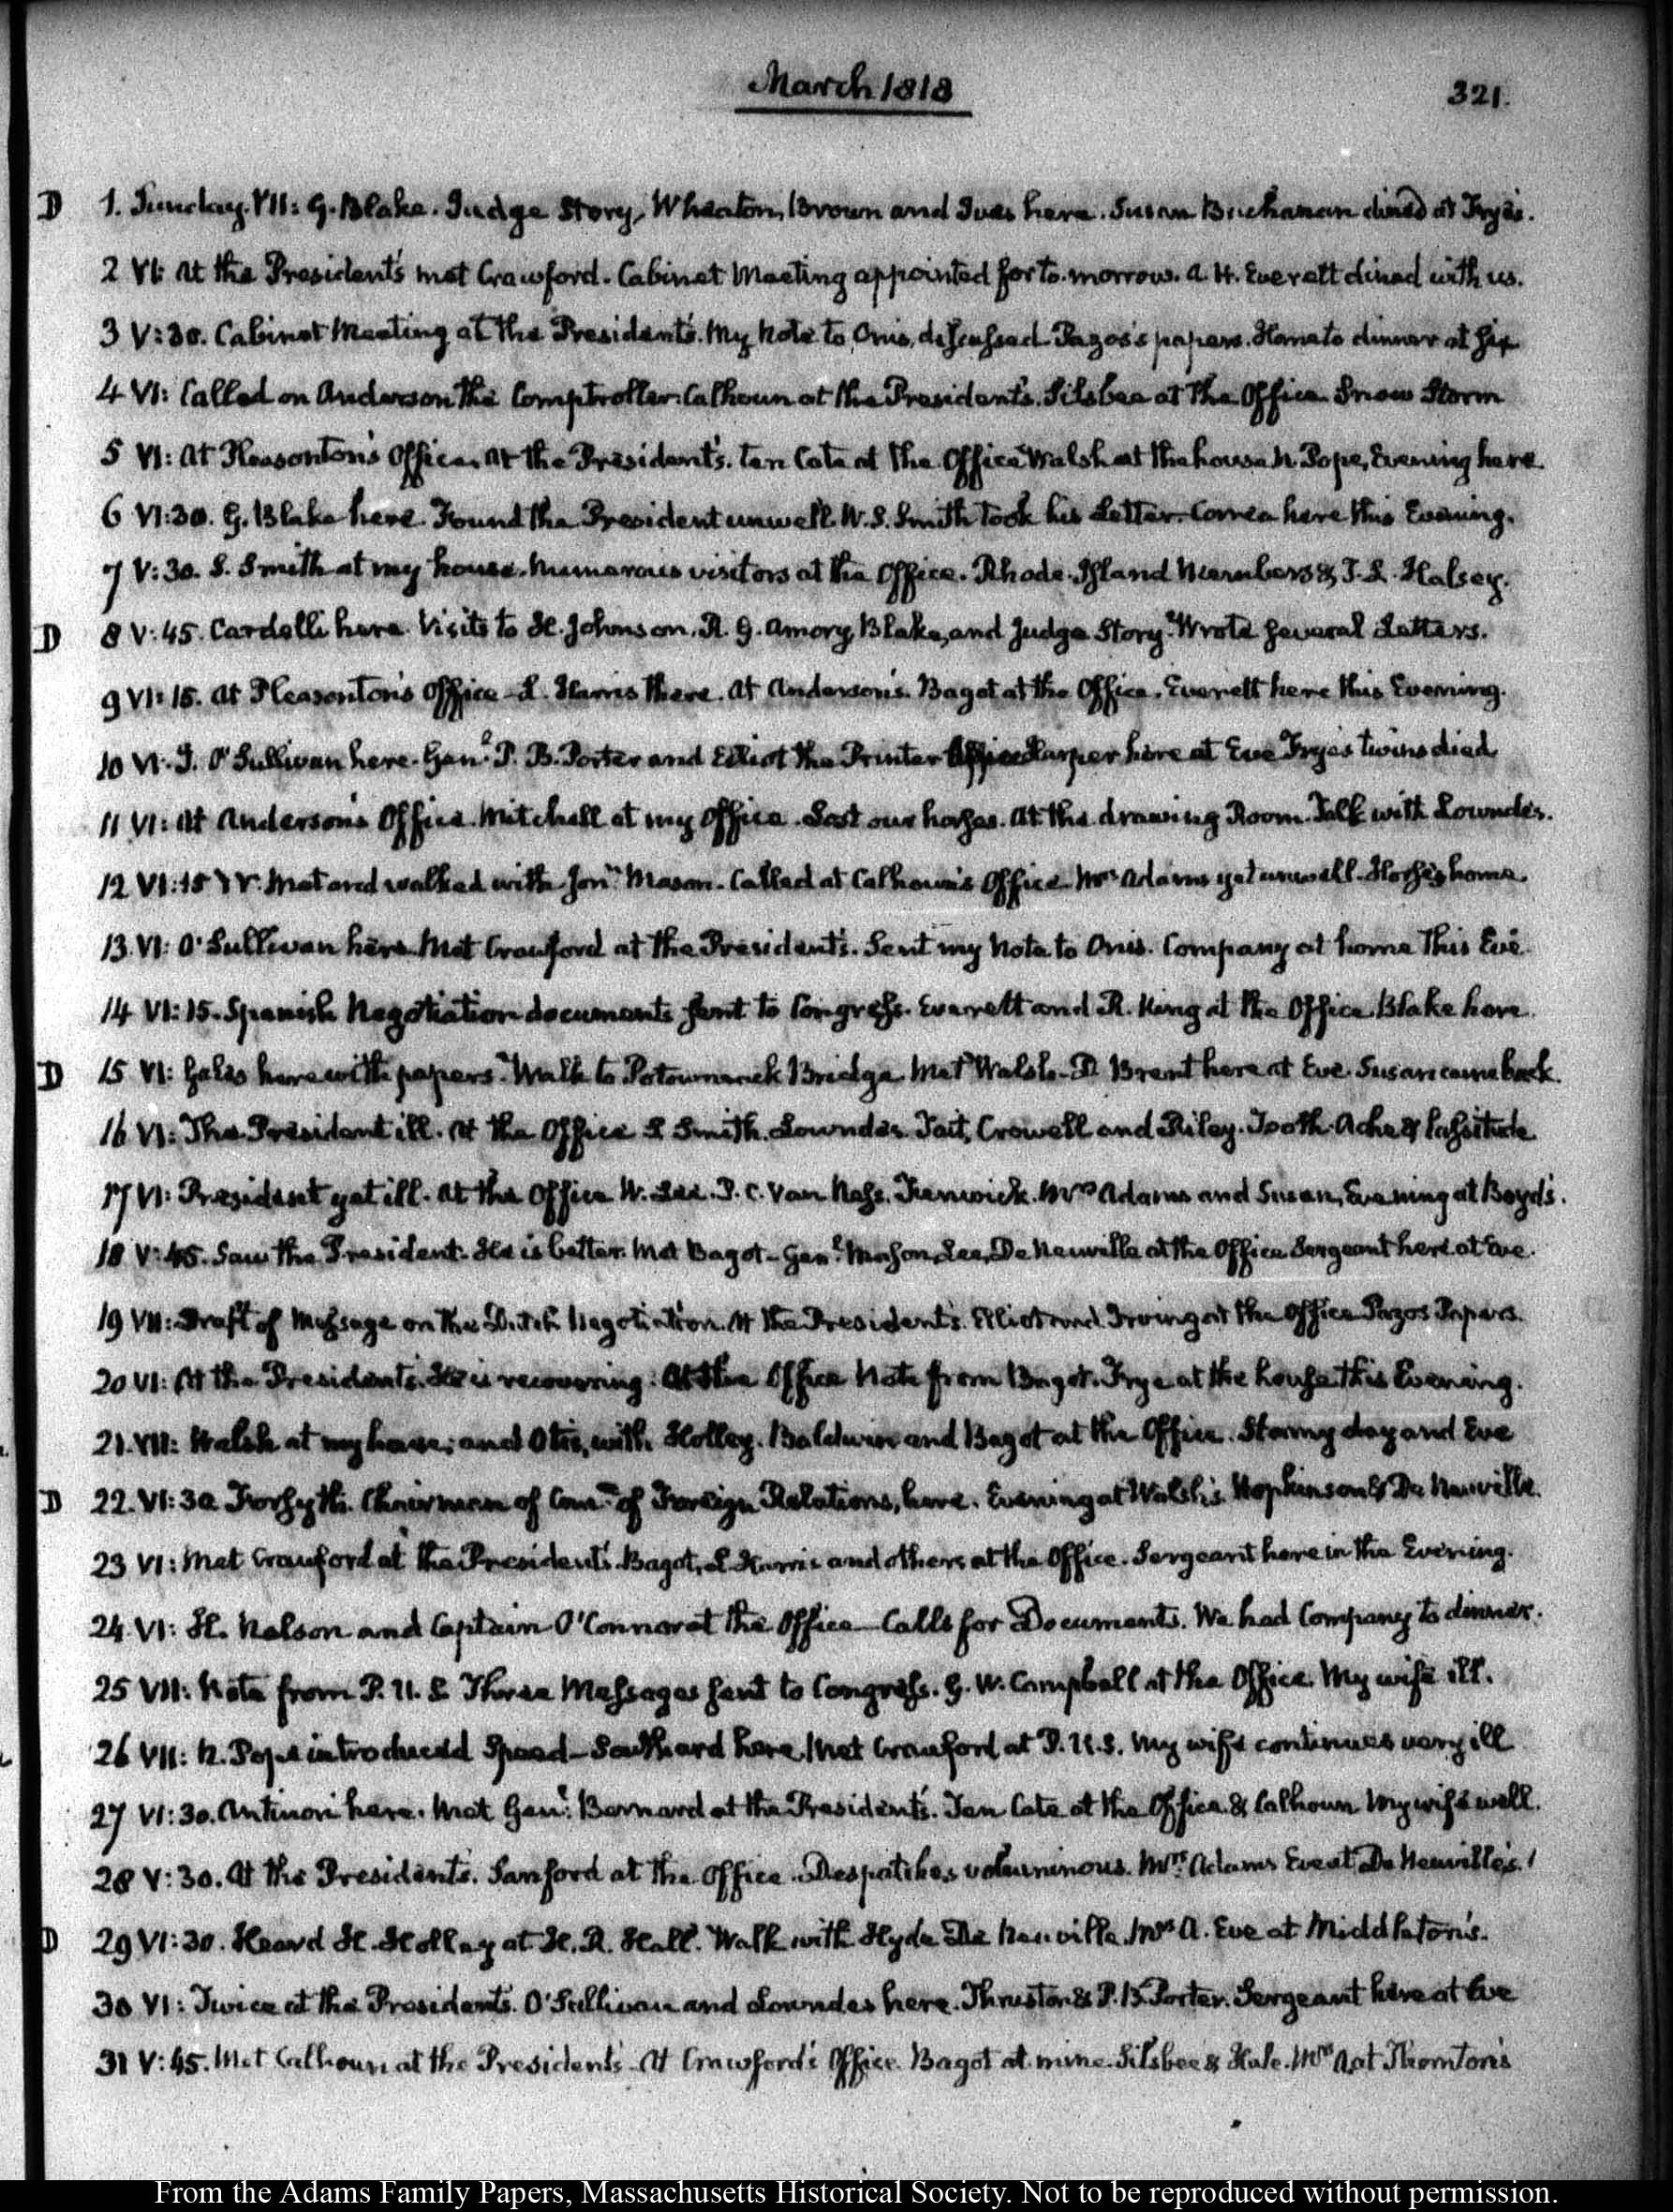 March 1818
321.
D 1. Sunday. VII: G. Blake. Judge Story, Wheaton, Brown and Ives here. Susan Buchanan dined at Frye's.
2 VI: At the President's met Crawford. Cabinet Meeting appointed for to-morrow. A. H. Everett dined with us.
3 V:30. Cabinet Meeting at the President's. My Note to Onis, discussed. Pazos's papers. Home to dinner at six
4 VI: Called on Anderson the Comptroller. Calhoun at the President's. Silsbee at the Office. Snow Storm
5 VI: At Pleasonton's Office. At the President's. Ten Cate at the Office Walsh at the house N. Pope, Evening here
6 VI:30. G. Blake here. Found the President unwell. W. S. Smith took his Letter. Correa here this Evening.
7 V:30. S. Smith at my house. Numerous visitors at the Office. Rhode-Island Members & T. L. Halsey.
D 8 V:45. Cardelli here. Visits to H. Johnson. R. G. Amory, Blake, and Judge Story. Wrote several Letters.
9 VI:15. At Pleasonton's Office - L. Harris there. At Anderson's. Bagot at the Office. Everett here this Evening.
10 VI. J. O'Sullivan here. Genl. P. B. Porter and Elliot the Printer Harper here at Eve Frye's twins died
11 VI: At Anderson's Office. Mitchell at my Office. Lost our horses. At the drawing Room. Talk with Lowndes.
12 VI:15 Met and walked with Jonn. Mason. Called at Calhoun's Office Mrs. Adams yet unwell. Horses home.
13. VI: O'Sullivan here. Met Crawford at the President's. Sent my Note to Onis. Company at home this Eve
14 VI:15. Spanish Negotiation documents sent to Congress. Everett and R. King at the Office. Blake here.
D 15 VI: Gales here with papers. Walk to Potowmack Bridge. Met Walsh. D. Brent here at Eve. Susan came back.
16 VI: The President ill. At the Office S Smith. Lowndes. Tait, Crowell and Riley. Tooth-Ache & lassitude
17 VI: President yet ill. At the Office W. Lee. P. C. Van Ness. Fenwick. Mrs Adams and Susan, Evening at Boyd's.
18 V:45. Saw the President. He is better. Met Bagot - Genl. Mason, Lee, De Neuville at the Office Sergeant here at Eve.
19 VII: Draft of Message on the Dutch Negotiation. At the President's. Elliot and Irving at the Office Pazos Papers.
20 VI: At the President's. He is recovering. At the Office Note from Bagot. Frye at the house this Evening.
21. VII: Walsh at my house; and Otis, with Holley. Baldwin and Bagot at the Office. Stormy day and Eve
D 22. VI:30 Forsyth. Chairman of Comee. of Foreign Relations, here. Evening at Walsh's Hopkinson & De Neuville.
23 VI: Met Crawford at the President's. Bagot, L. Harris and others at the Office. Sergeant here in the Evening.
24 VI: H. Nelson and Captain O'Connor at the Office - Calls for Documents. We had Company to dinner.
25 VII: Note from P. U. S. Three Messages sent to Congress. G. W. Campbell at the Office. My wife ill.
26 VII: N. Pope introduced Speed - Southard here. Met Crawford at P. U. S. My wife continues very ill
27 VI:30. Antinori here. Met Genl. Bernard at the President's. Ten Cate at the Office & Calhoun My wife well.
28 V:30. At the President's. Sanford at the Office. Despatches voluminous. Mrs. Adams Eve at De Neuville's.
D 29 VI:30. Heard H. Holley at H. R. Hall. Walk with Hyde De Neuville. Mrs A. Eve at Middleton's.
30 VI: Twice at the President's. O'Sullivan and Lowndes here. Thruston & P. B. Porter. Sergeant here at Eve
31 V:45. Met Calhoun at the President's. At Crawford's Office. Bagot at mine. Silsbee & Hale. Mrs A at Thornton's
From the Adams Family Papers, Massachusetts Historical Society. Not to be reproduced without permission.